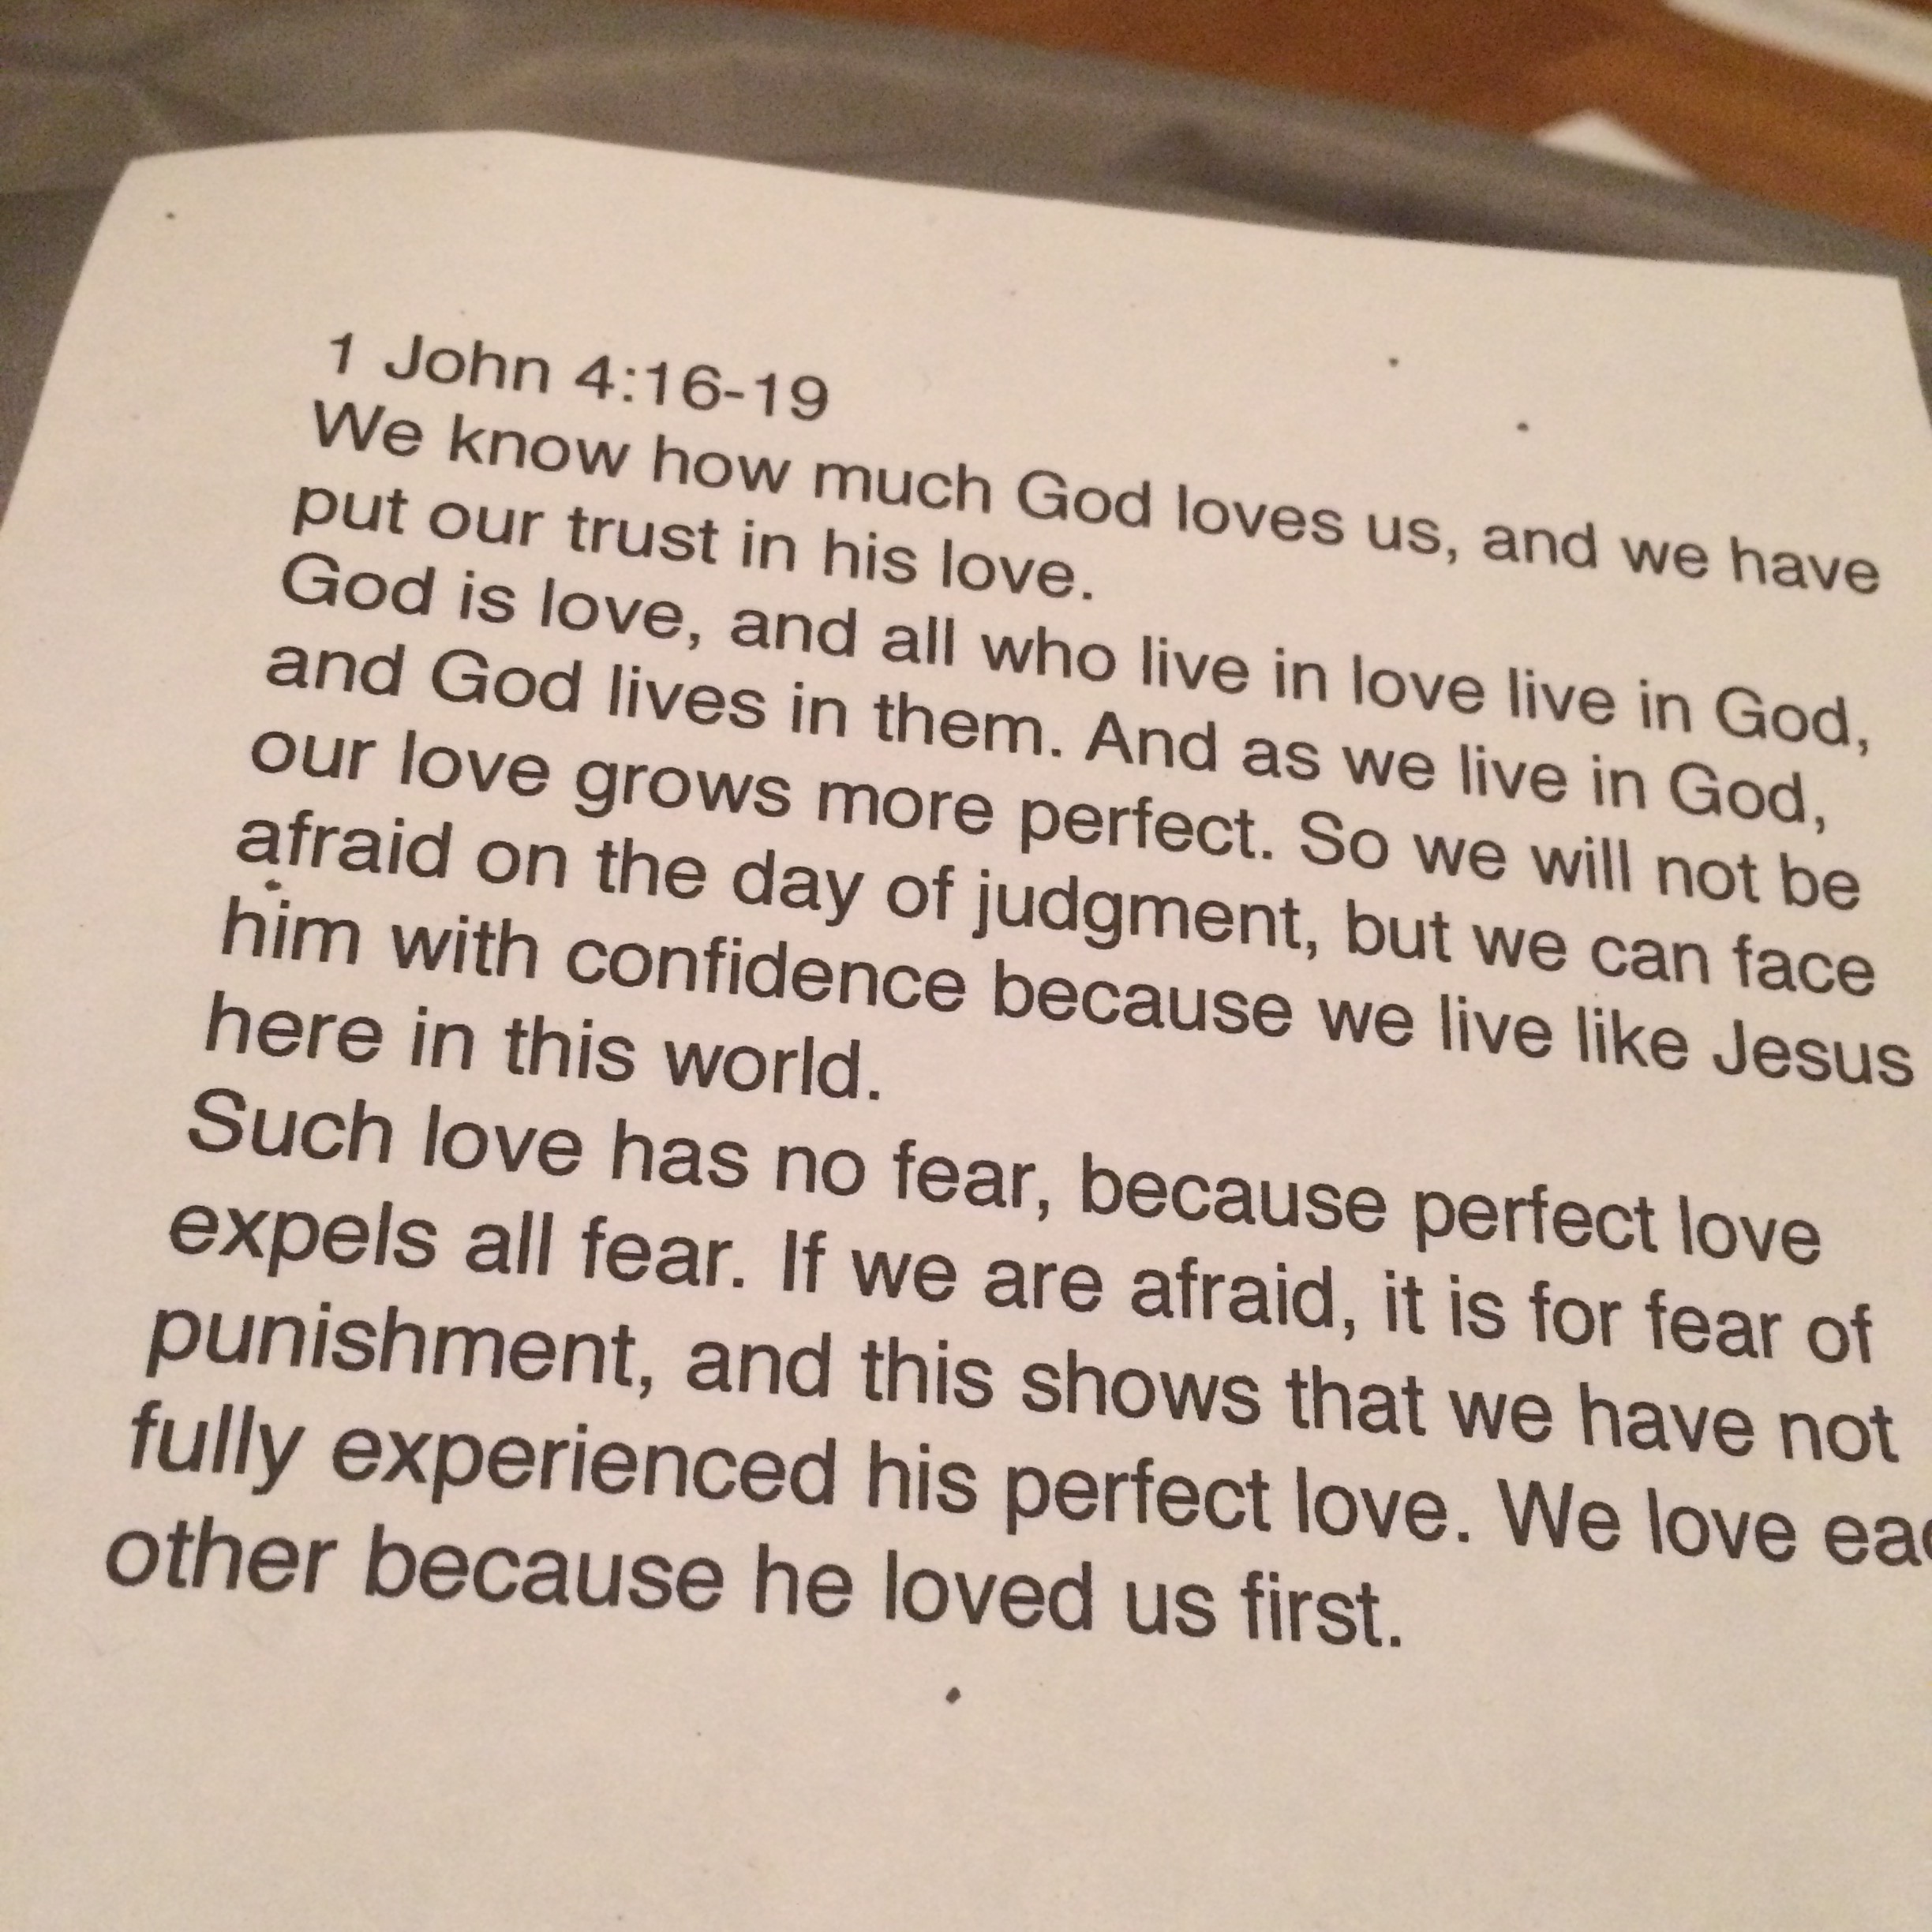 1 John 4:16-19
We know how much God loves us, and we have
put our trust in his love.
God is love, and all who live in love live in God,
and God lives in them. And as we live in God,
our love grows more perfect. So we will not be
afraid on the day of judgment, but we can face
him with confidence because we live like Jesus
here in this world.
Such love has no fear, because perfect love
expels all fear. If we are afraid, it is for fear of
punishment, and this shows that we have not
fully experienced his perfect love. We love
other because he loved us first.